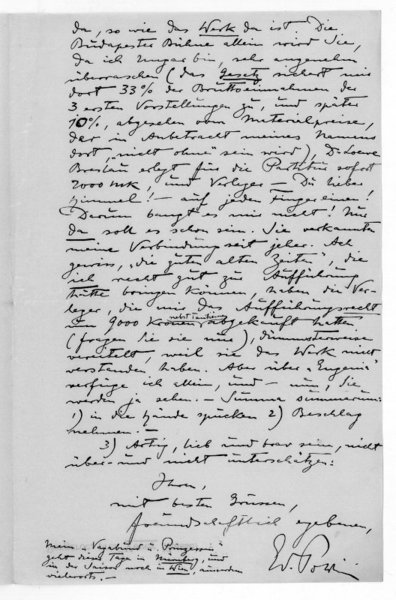 da, so wie das Werk da ist. Die
Budapester Bühne allein wird Sie,
da ich Ungar bin, sehr angenehm
überraschen (das Gesetz sichert mir
dort 33% der Bruttoeinnahmen der
3 ersten Vorstellungen zu, und später
10%, abgesehen vom Materialpreise,
der in Anbetracht meines Namens
dort "nicht ohne" sein wird), Dr Loewe
Breslau erlegt für die Partitur sofort
2000 mk, und Verleger — Du lieber
Himmel! — auf jeden Finger einen!
Darum bangt es mir nicht! Nur
da soll es schon sein. Sie verkannten
meine Verbindung seit jeher. Ach
gewiss, "die guten alten Zeiten", die
ich recht gut zu Aufführung
hätte bringen können, haben die Ver-
leger, die mir das Aufführungsrecht
um 9000 Kronen abgekauft hatten
nebst Tantiemen
(fragen Sie sie nur), dümmsterweise
vereitelt, weil sie das Werk nicht
verstanden haben. Aber über "Eugenie"
verfüge ich allein, und — nun, Sie
werden ja sehen. — Summa summarum:
1) in die Hände spucken 2) Beschlag
nehmen. —
3) Artig, lieb und brav sein, nicht
über- und nicht unterschätzen:
Ihren,
mit besten Grüssen,
freundschaftlich ergebenen,
Mein "Vagabund u. Prinzessin"
geht diese Tage in Nürnberg, und
in der Saison noch in Wien, anderen